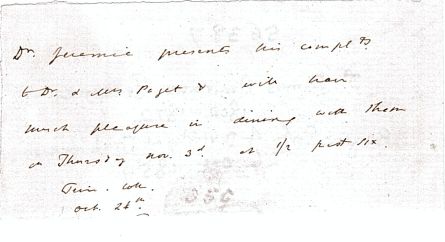 Dr. Jeremie presents his complts
to Dr. & Mrs. Paget & will have
much pleasure in dining with them
on Thursday Nov. 3d. at 1/2 past six.
Trin. Coll.
Oct. 26th.